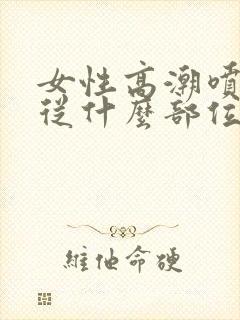 女性高潮噴
從什麼部位
維他命硬